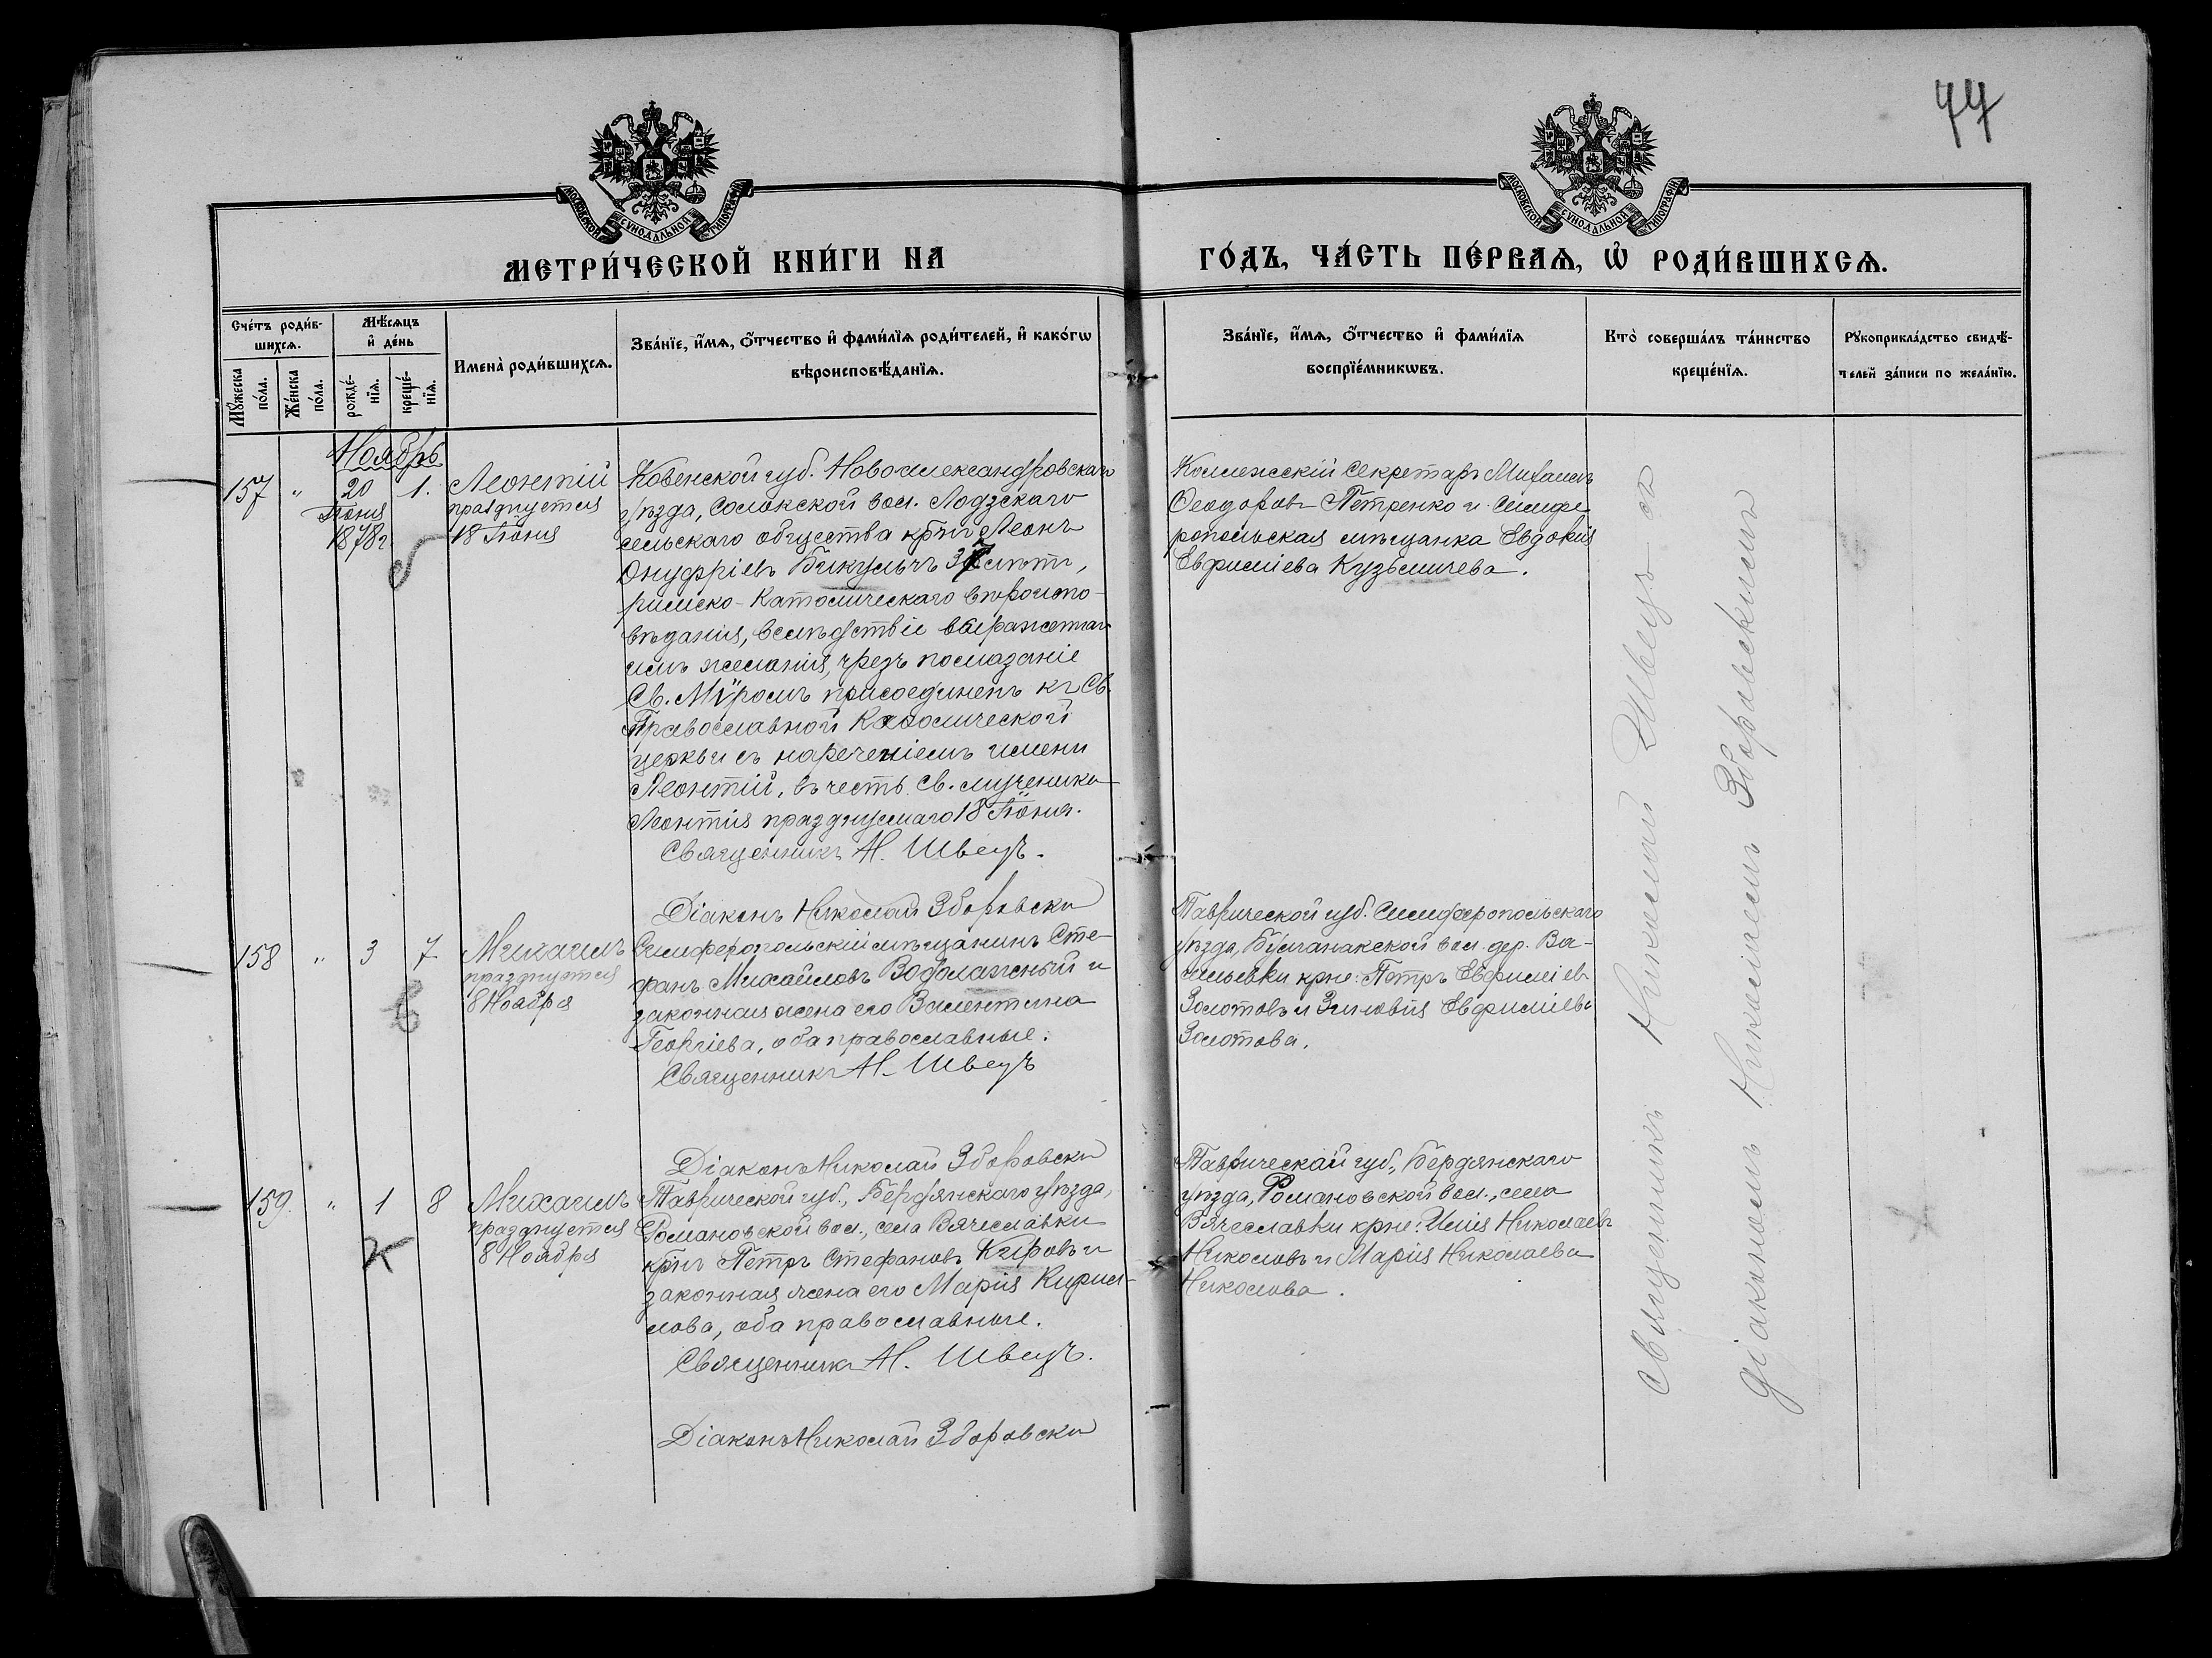 77
МОСКОВСКОЙ СѴНОДАЛЬНОЙ ТИПОГРАФІИ
МОСКОВСКОЙ СѴНОДАЛЬНОЙ ТИПОГРАФІИ
МЕТРИ́ЧЕСКОЙ КНИ́ГИ НА
ГО́ДЪ, ЧА́СТЬ ПЕ́РВАЯ, Ѡ РОДИ́ВШИХСЯ.
Сче́тъ роди́в-
шихся.
Му́жеска
по́ла.
Же́нска
по́ла.
Мѣ́сяцъ
и де́нь
рожде́-
нія.
креще́-
нія.
Имена̀ роди́вшихся.
Зва́нїе, и́мя, ѻ́тчество и фами́лїя роди́телей, и како́гѡ
вѣроисповѣ́данїя.
Зва́нїе, и́мя, ѻ́тчество и фами́лїя
воспрїе́мникѡвъ.
Кто̀ соверша́лъ та́инство
креще́нїя.
Рукоприкла́дство свидѣ́-
телей за́писи по жела́нїю.
Ноябрь
157 " 20 1.
Іюня
1878 г.
Леонтій
празднуется
18 Іюня
Ковенской губ. Новоалександровскаго
уѣзда, Солокской вол. Лодзскаго
сельскаго общества крнъ Леонъ
Онуфріевъ Бикульчъ 37 лѣтъ,
римско-Католическаго вѣроиспо-
вѣданія, вслѣдствіе выраженнаго
имъ желанія, чрезъ помазаніе
Св. Мѵромъ присоединенъ къ Св.
Православной Каѳолической
церкви съ нареченіемъ имени
Леонтій, въ честь Св. мученика
Леонтія празднуемаго 18 Іюня.
Священникъ Н. Швецъ.
Діаконъ Николай Зборовски
Коллежскій Секретарь Михаилъ
Ѳеодоровъ Петренко и Симфе
ропольская мѣщанка Евдокія
Евфиміева Кузьмичева.
158 " 3 7
Михаилъ
празднуется
8 Ноября
Симферопольскій мѣщанинъ Сте-
фанъ Михайловъ Водолажный и
законная жена его Валентина
Георгіева, оба православные.
Священникъ Н. Швецъ
Діаконъ Николай Зборовски
Таврической губ. Симферопольскаго
уѣзда, Булганакской вол. дер. Ва-
сильевки крне: Петръ Евфиміевъ
Золотовъ и Зиновія Евфиміева
Золотова.
159. " 1 8
Михаилъ
празднуется
8 Ноября
Таврической губ., Бердянскаго уѣзда,
Романовской вол., села Вячеславки
крнъ Петръ Стефановъ Кировъ и
законная жена его Марія Кирил-
лова, оба православные.
Священникъ Н. Швецъ.
Діаконъ Николай Зборовски
Таврической губ., Бердянскаго
уѣзда, Романовской вол., села
Вячеславки крне: Илія Николаевъ
Николовъ и Марія Николаева
Николова.
Священникъ Николай Швецъ съ
діакономъ Николаемъ Зборовскимъ